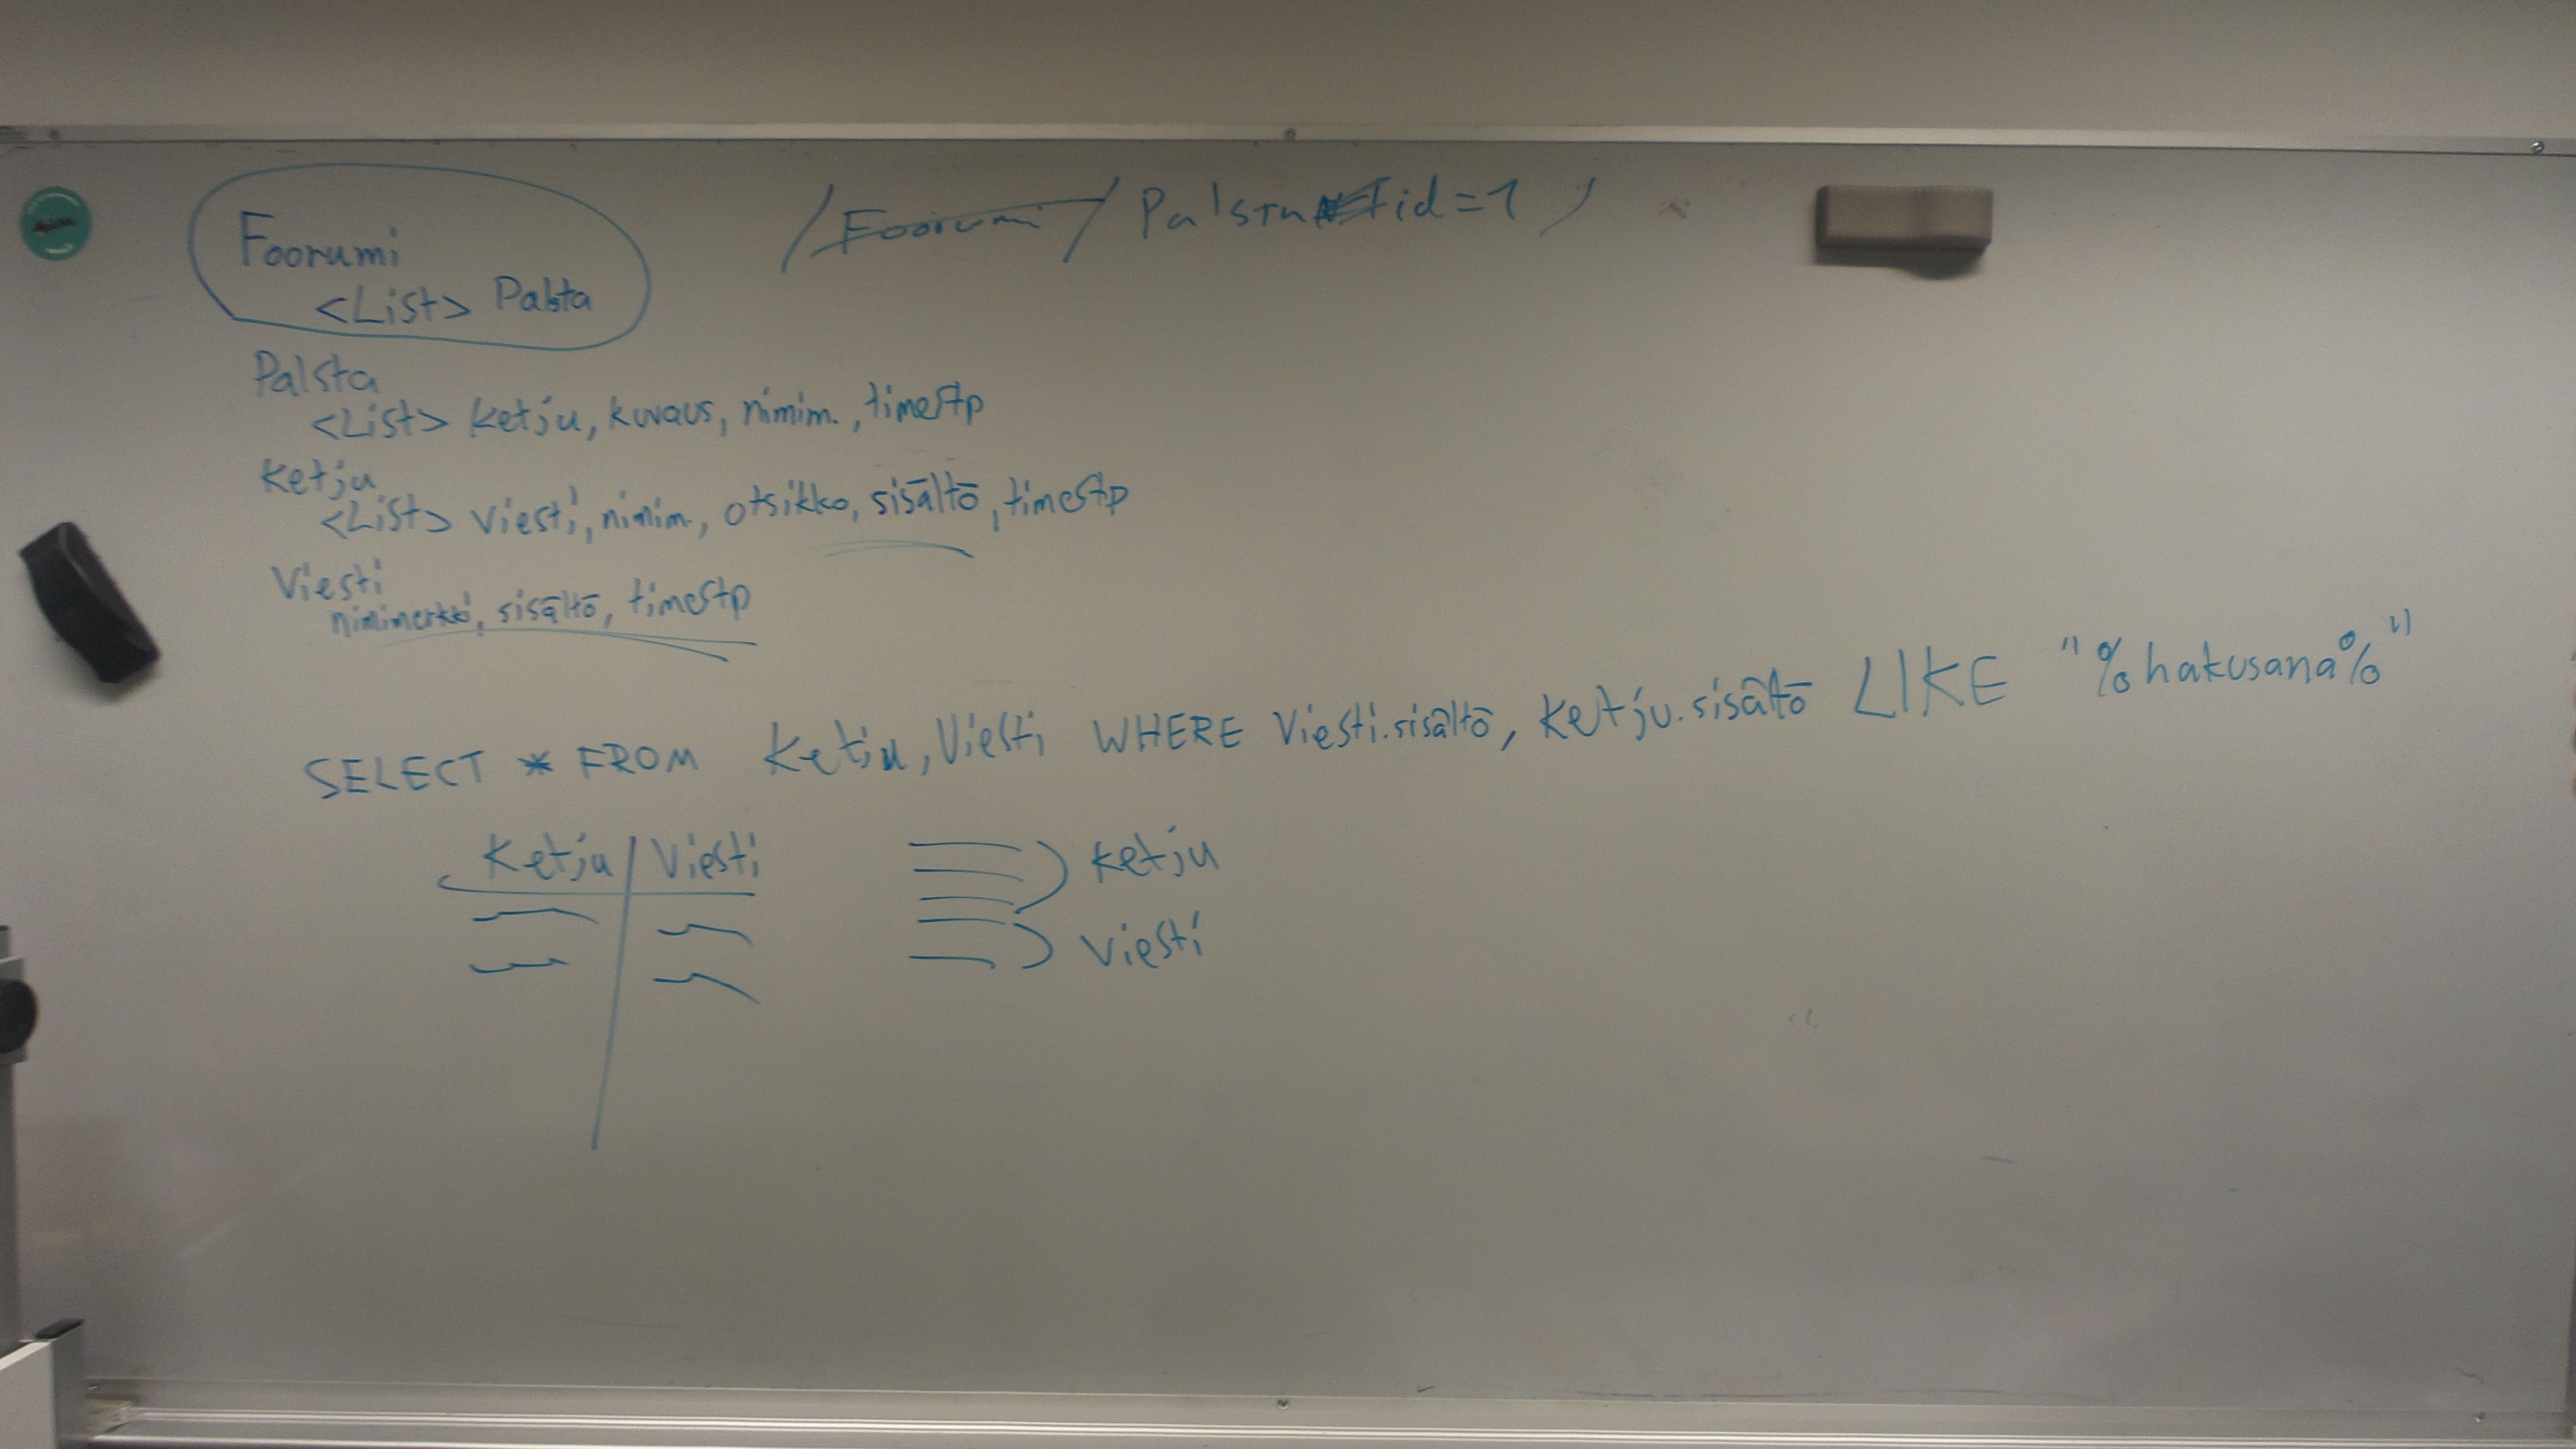 Foorumi
<List> Palsta
/Foorumi/Palsta id=1
Palsta
<List> ketju, kuvaus, nimim., timestp
Ketju
<List> viesti, nimim., otsikko, sisältö, timestp
Viesti
nimimerkki, sisältö, timestp
SELECT * FROM Ketju, Viesti WHERE Viesti.sisältö, Ketju.sisältö LIKE "%hakusana%"
Ketju Viesti
ketju
viesti